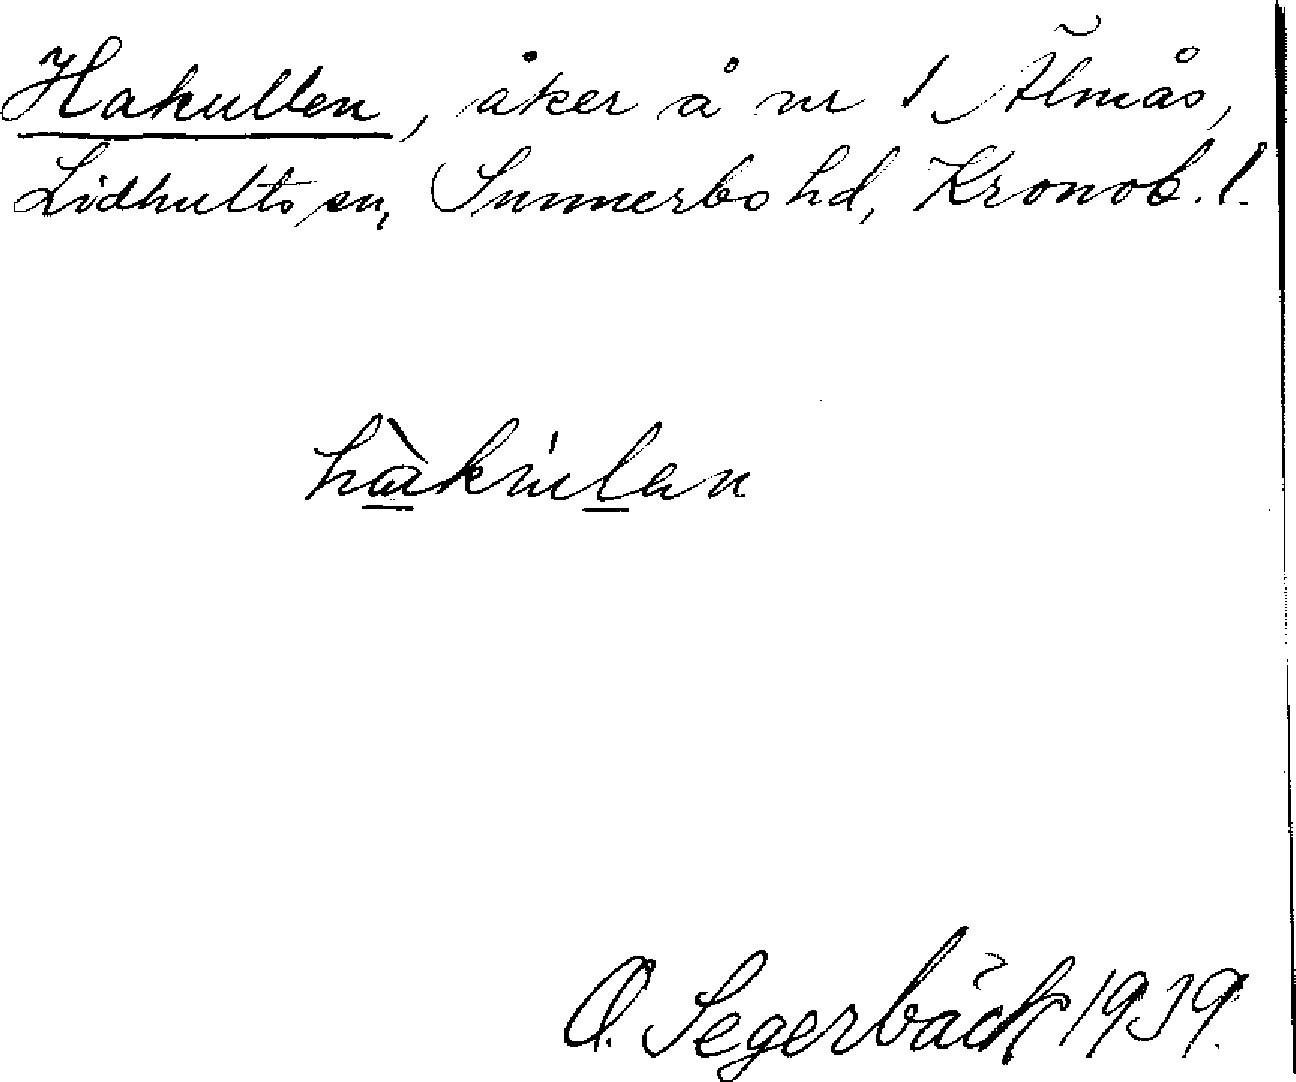 Hakullen, åker å nr 1 Älmås,
Lidhults sn, Sunnerbo hd, Kronob. l.
hàkúlan
O. Segerbäck 1939.